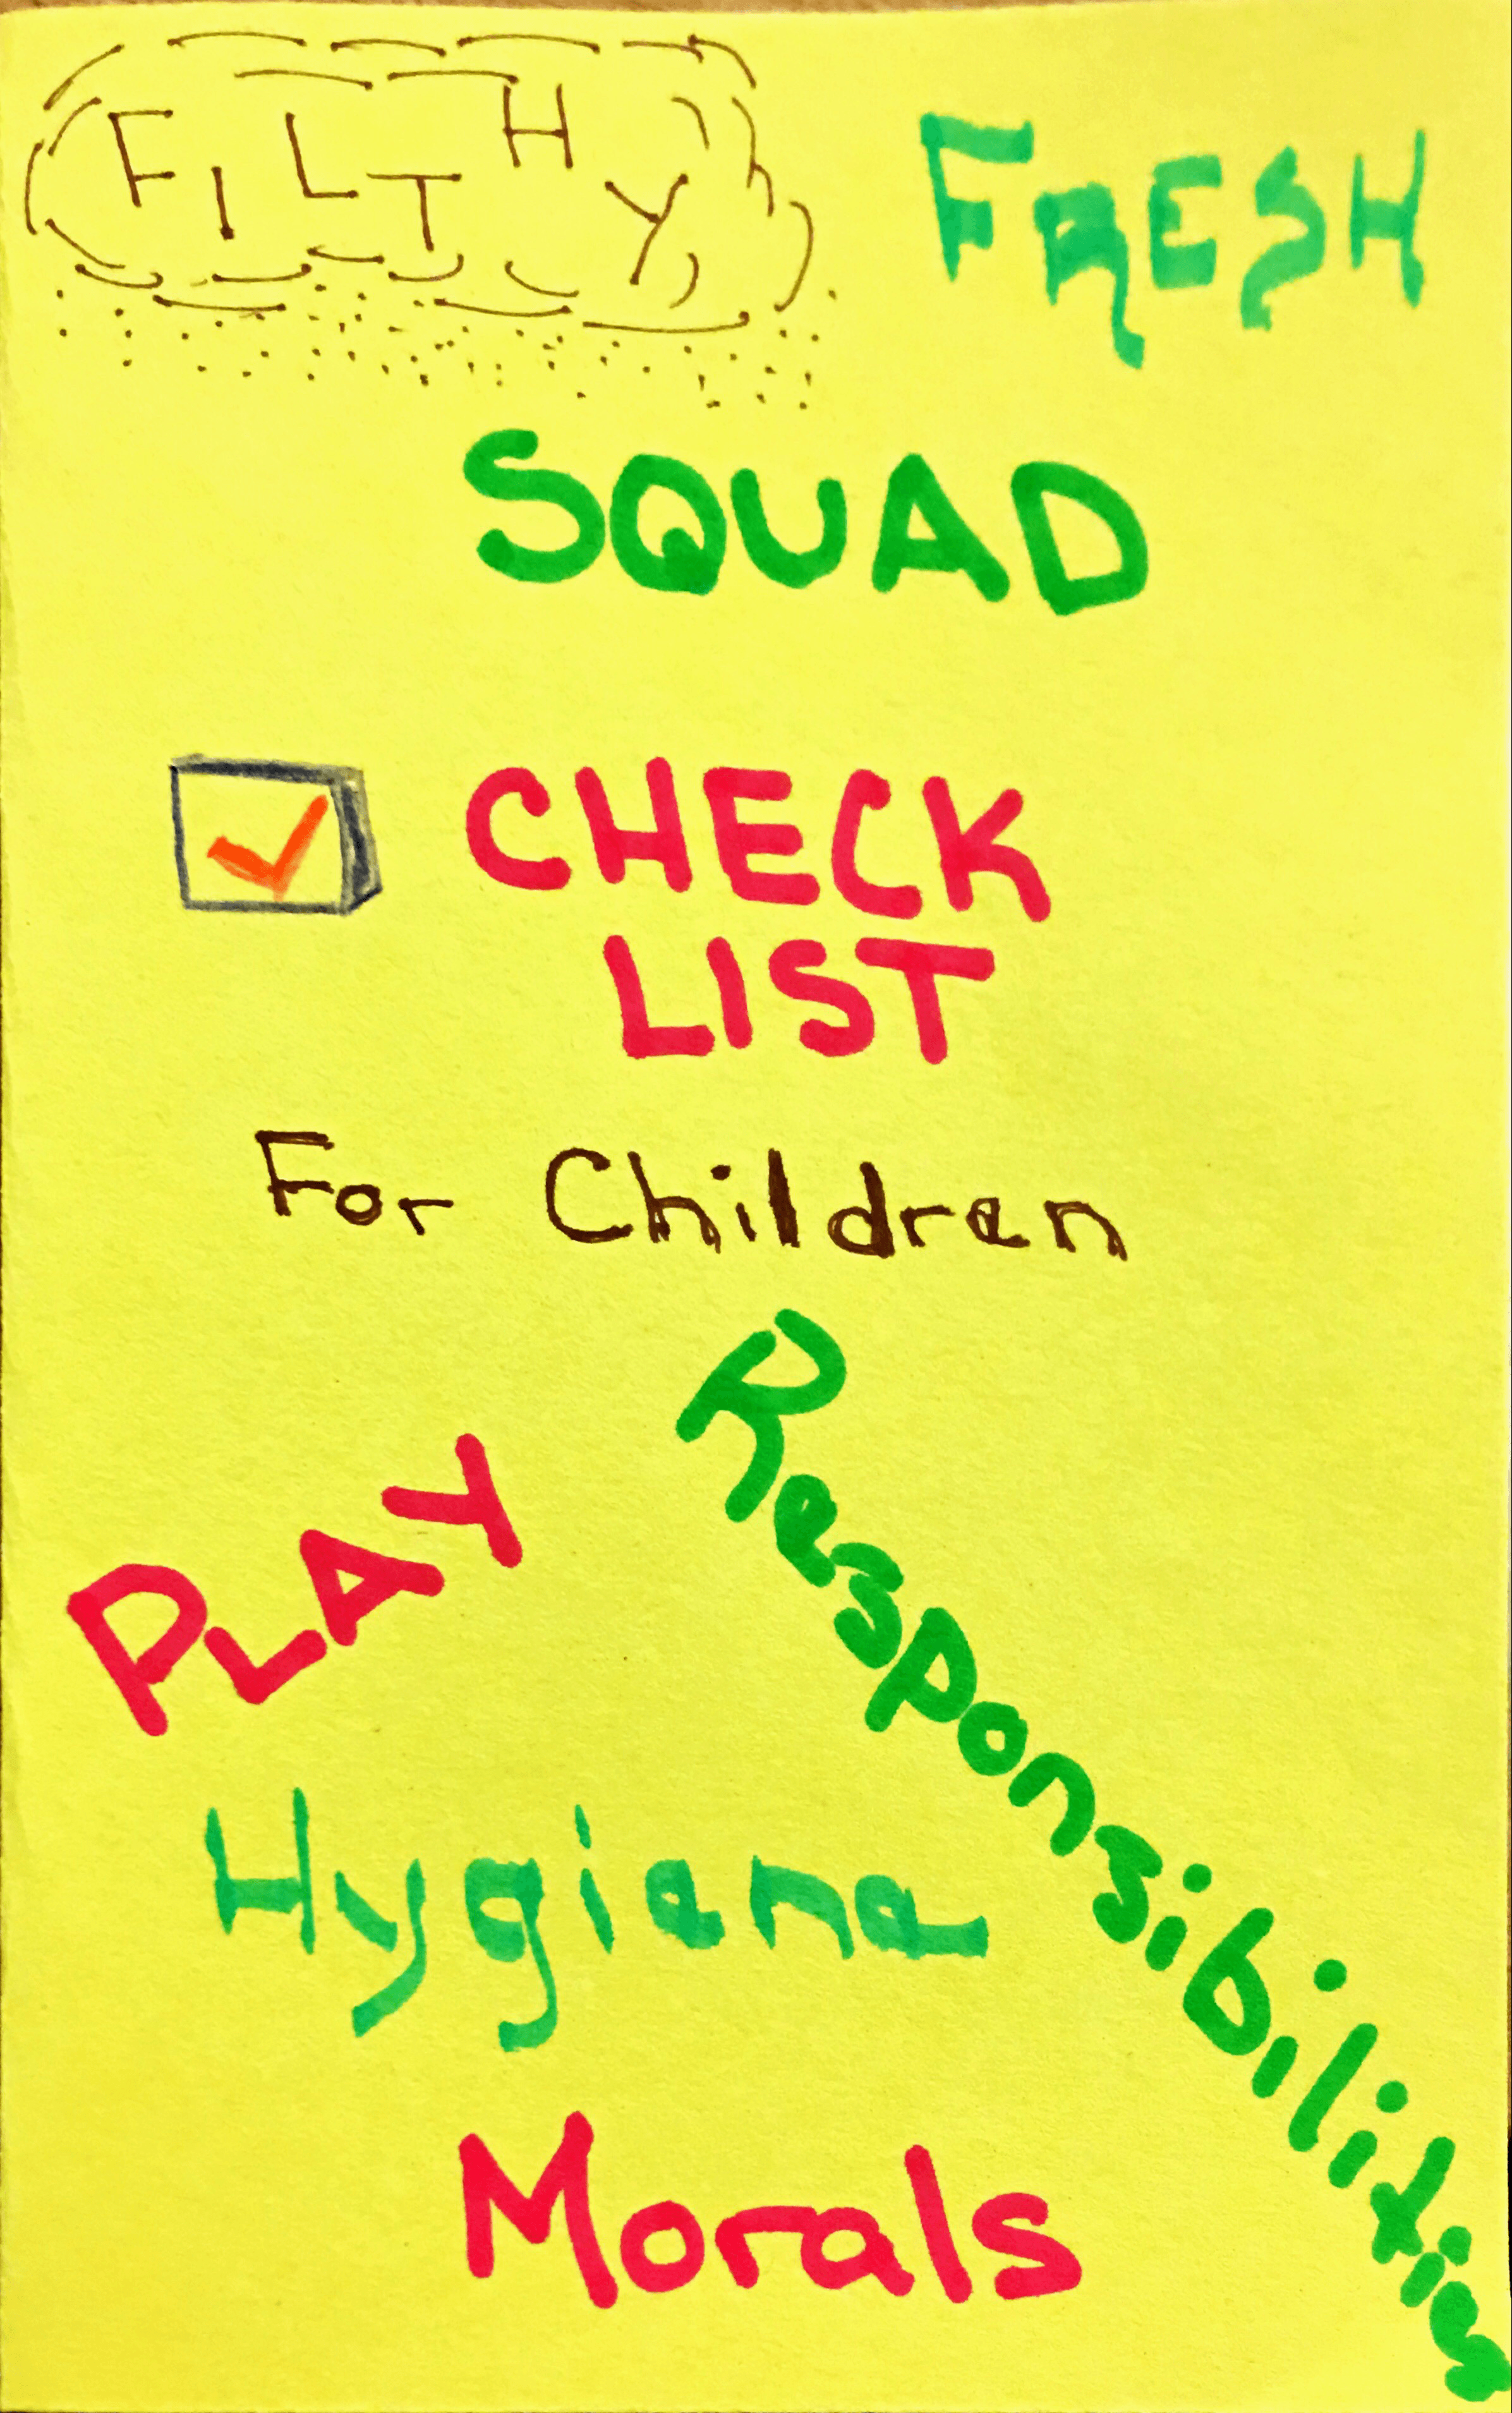 FILTHY FRESH
SQUAD
CHECK
LIST
For Children
PLAY
Responsibilities
Hygiene
Morals